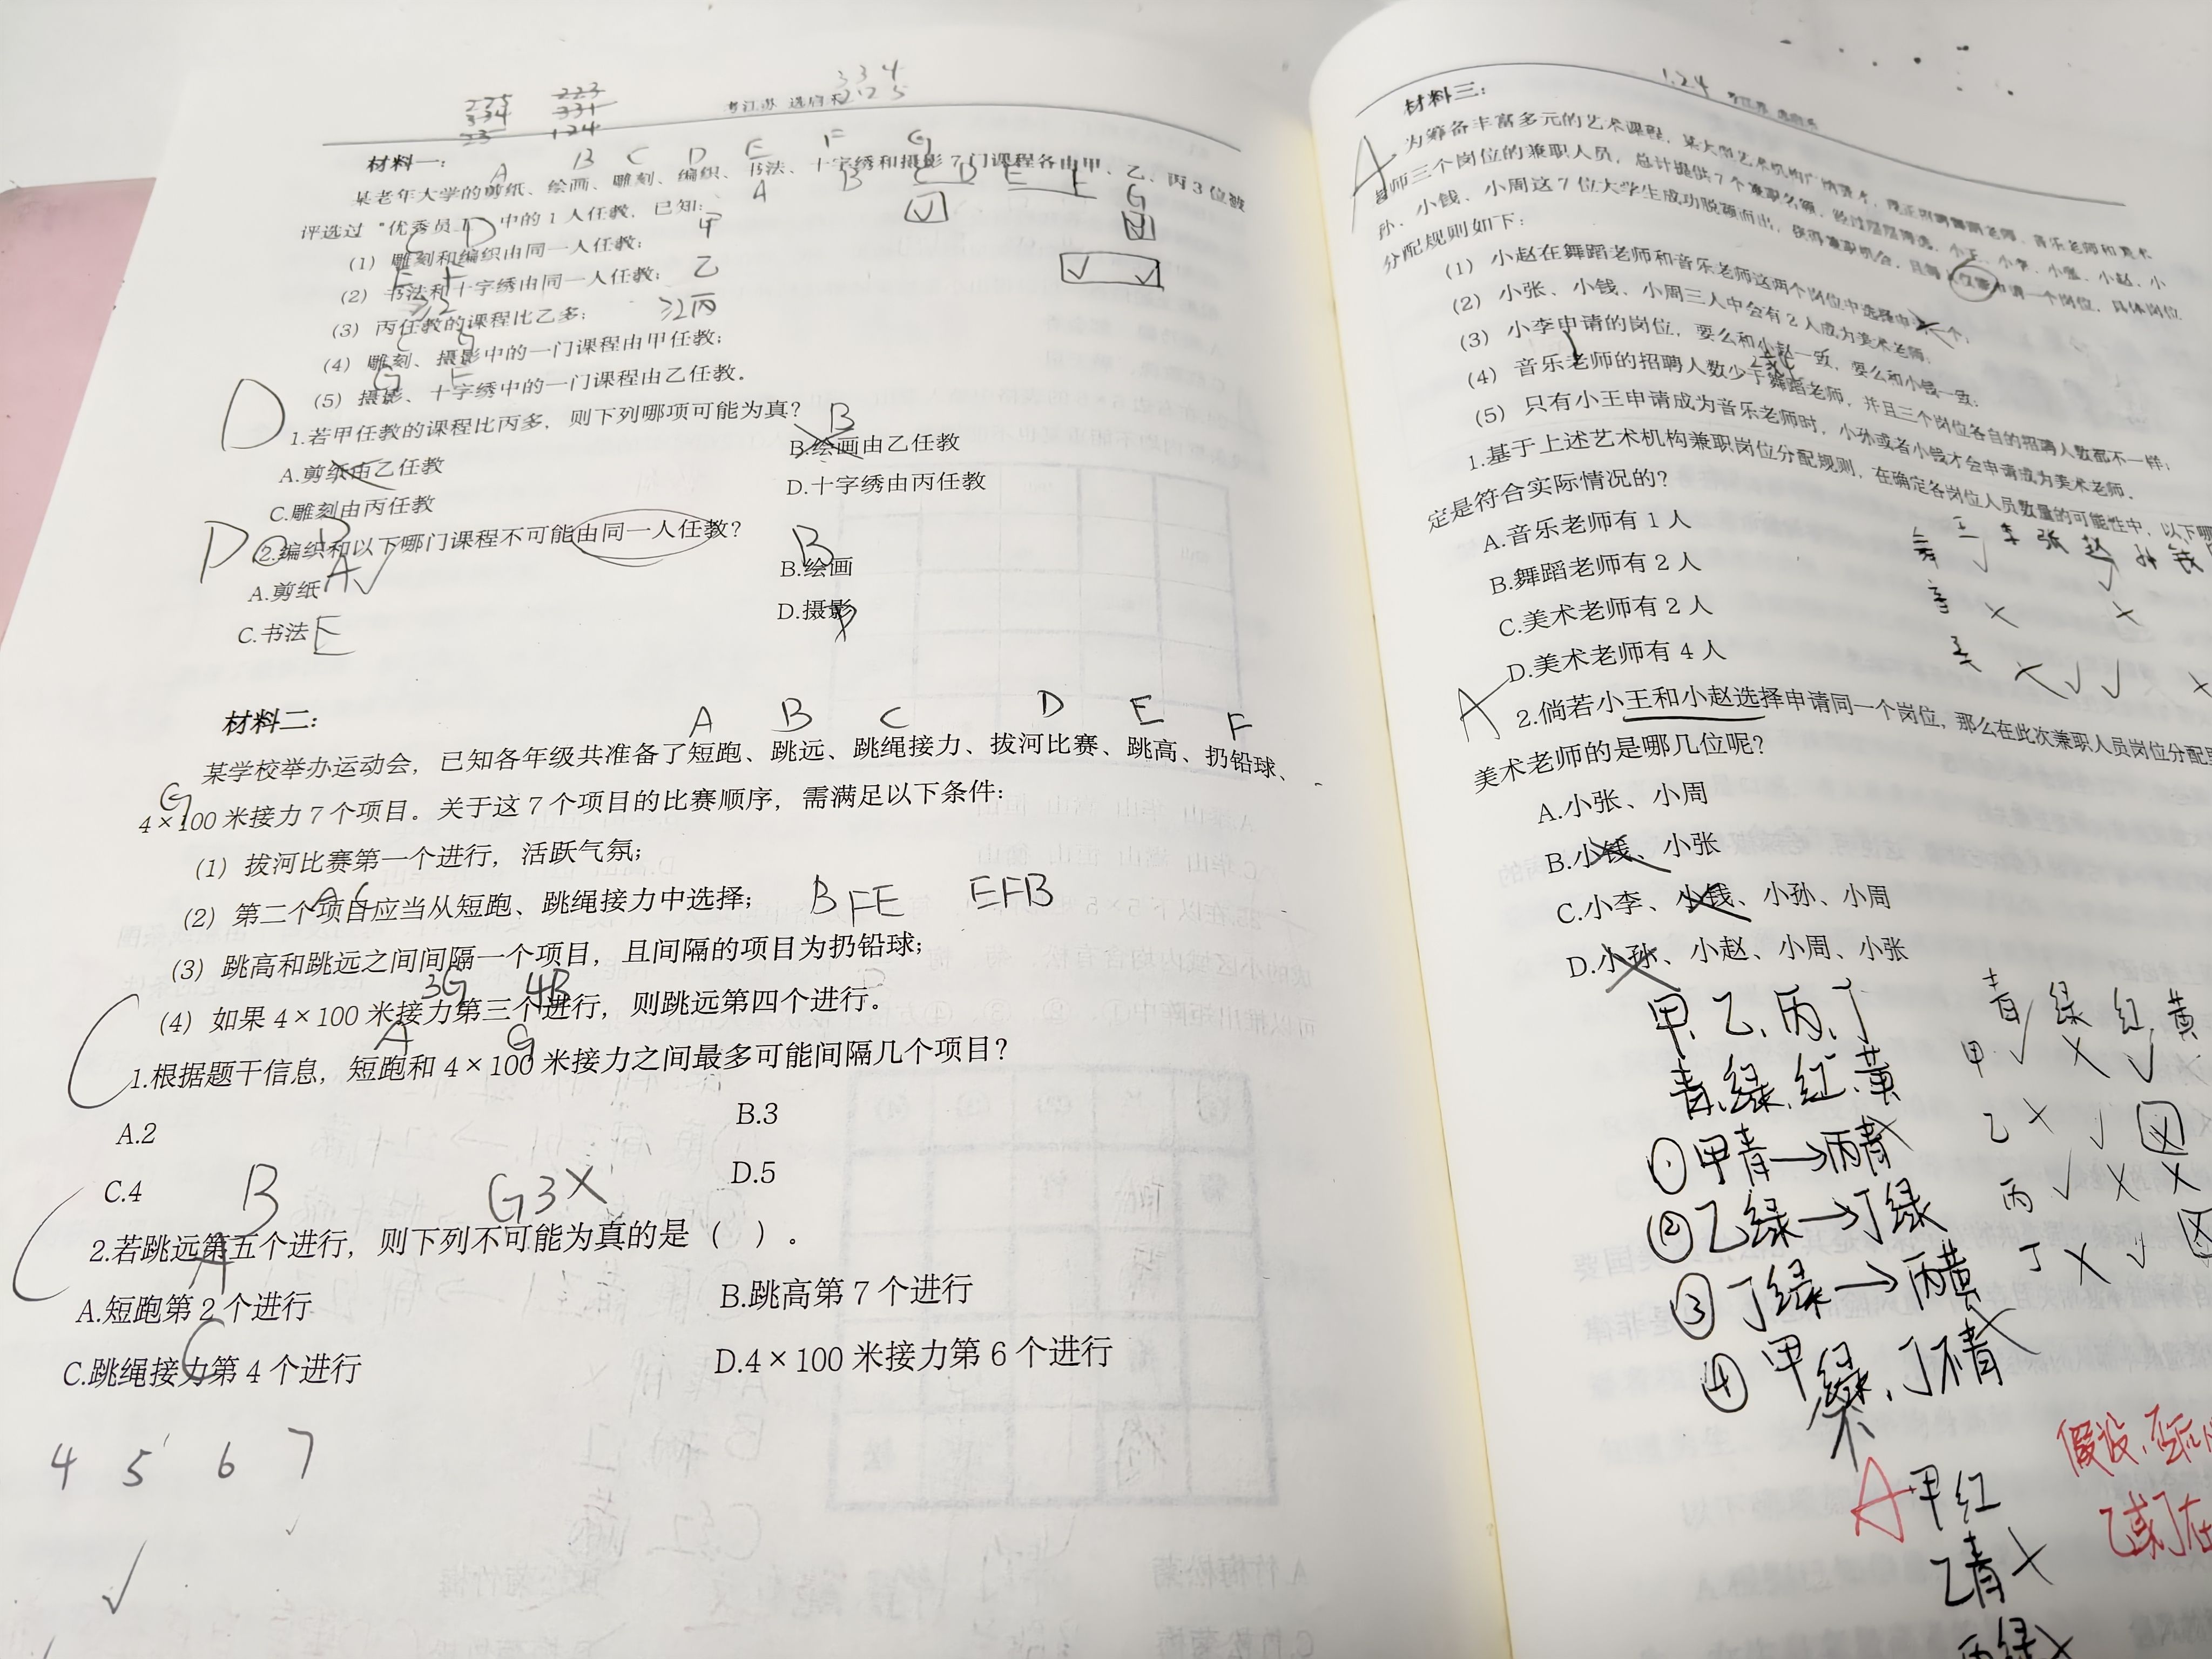 3 3 4
2 2 5
225
334
223
331
124
考江苏 选启
材料一：
A B C D E F G
某老年大学的剪纸、绘画、雕刻、编织、书法、十字绣和摄影7门课程各由甲、乙、丙3位被
评选过“优秀员工”中的1人任教，已知：
A B C D E F G
甲
乙
≥2丙
(1) 雕刻和编织由同一人任教；
(2) 书法和十字绣由同一人任教；
(3) 丙任教的课程比乙多；
(4) 雕刻、摄影中的一门课程由甲任教；
(5) 摄影、十字绣中的一门课程由乙任教。
D
1.若甲任教的课程比丙多，则下列哪项可能为真？
A.剪纸由乙任教
B.绘画由乙任教
C.雕刻由丙任教
D.十字绣由丙任教
D
2.编织和以下哪门课程不可能由同一人任教？
A.剪纸
A
B.绘画
B
C.书法
E
D.摄影
材料二：
A B C D E F
某学校举办运动会，已知各年级共准备了短跑、跳远、跳绳接力、拔河比赛、跳高、扔铅球、
G
4×100米接力7个项目。关于这7个项目的比赛顺序，需满足以下条件：
(1) 拔河比赛第一个进行，活跃气氛；
A C
(2) 第二个项目应当从短跑、跳绳接力中选择；
BFE EFB
(3) 跳高和跳远之间间隔一个项目，且间隔的项目为扔铅球；
3G 4B
(4) 如果4×100米接力第三个进行，则跳远第四个进行。
A G
C
1.根据题干信息，短跑和4×100米接力之间最多可能间隔几个项目？
A.2
B.3
C.4
D.5
B G3×
C
2.若跳远第五个进行，则下列不可能为真的是（ ）。
A
A.短跑第2个进行
B.跳高第7个进行
C
C.跳绳接力第4个进行
D.4×100米接力第6个进行
4 5 6 7
1.24
材料三：
A
为筹备丰富多元的艺术课程，某大型艺术机构
老师三个岗位的兼职人员，总计提供7个兼职名额，经过层层筛选，小王、小李、小张、小赵、小
孙、小钱、小周这7位大学生成功脱颖而出，获得兼职机会，且每人仅需申请一个岗位，具体岗位
分配规则如下：
(1) 小赵在舞蹈老师和音乐老师这两个岗位中选择申请一个；
(2) 小张、小钱、小周三人中会有2人成为美术老师；
(3) 小李申请的岗位，要么和小赵一致，要么和小钱一致；
(4) 音乐老师的招聘人数少于舞蹈老师，并且三个岗位各自的招聘人数都不一样；
(5) 只有小王申请成为音乐老师时，小孙或者小钱才会申请成为美术老师。
1.基于上述艺术机构兼职岗位分配规则，在确定各岗位人员数量的可能性中，以下哪
定是符合实际情况的？
A.音乐老师有1人
B.舞蹈老师有2人
C.美术老师有2人
D.美术老师有4人
王 李 张 赵 孙 钱
舞
音
美
A
2.倘若小王和小赵选择申请同一个岗位，那么在此次兼职人员岗位分配
美术老师的是哪几位呢？
A.小张、小周
B.小钱、小张
C.小李、小钱、小孙、小周
D.小孙、小赵、小周、小张
甲、乙、丙、丁
青、绿、红、黄
①甲青→丙青
②乙绿→丁绿
③丁绿→丙黄
④甲绿、丁不青
不
青 绿 红 黄
甲 √ × √
乙 × √
丙 √ × ×
丁 × √
假设、
乙或丁在
A
甲红
乙青×
丙绿×